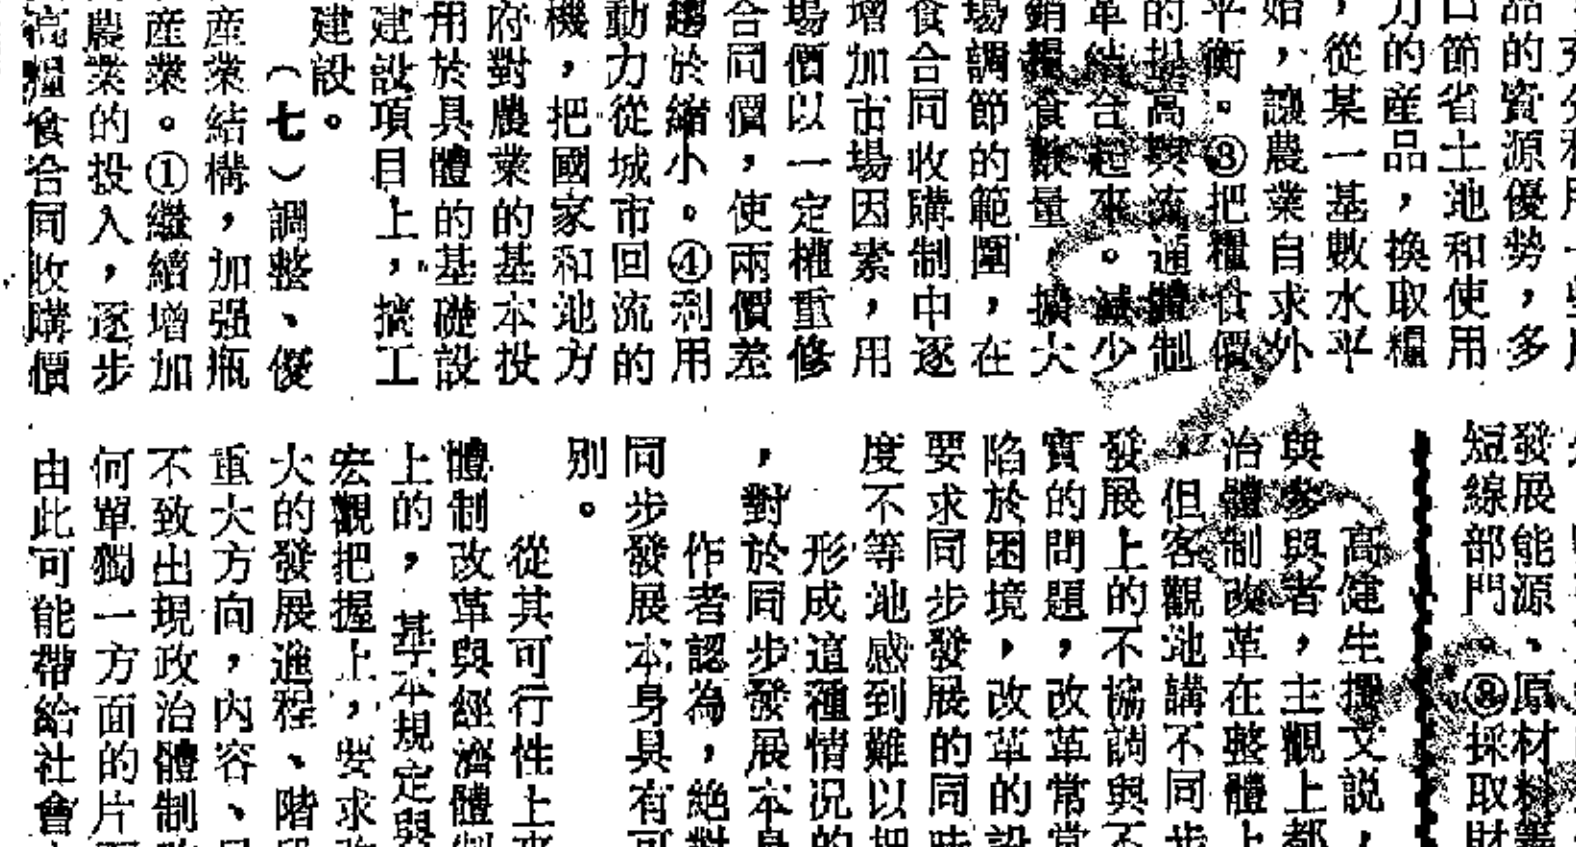 品的資源優勢，多
口節省土地和使用
力的産品，換取糧
，從某一基數水平
始，讓農業自求外
平衡。③把糧食價
的提高與流通體制
革結合起來。減少
銷糧食數量，擴大
場調節的範圍，在
食合同收購制中逐
增加市場因素，用
場價以一定權重修
合同價，使兩價差
趨於縮小。④利用
動力從城市回流的
機，把國家和地方
府對農業的基本投
用於具體的基礎設
建設項目上，搞工
建設。
（七）調整、優
産業結構，加强瓶
産業。①繼續增加
農業的投入，逐步
高糧食合同收購價
發展能源、原材料等
短線部門。⑧採取財
高健生撰文説，
與參與者，主觀上都
治體制改革在整體上
，但客觀地講不同步
發展上的不協調與不
實的問題，改革常常
陷於困境，改革的設
要求同步發展的同時
度不等地感到難以把
形成這種情况的
，對於同步發展本身
作者認為，絶對
同步發展本身具有可
別。
從其可行性上來
體制改革與經濟體制
上的，基本規定
宏觀把握上，要求
大的發展進程、階
重大方向，内容、
不致出現政治體制
何單獨一方面的片
由此可能帶給社會